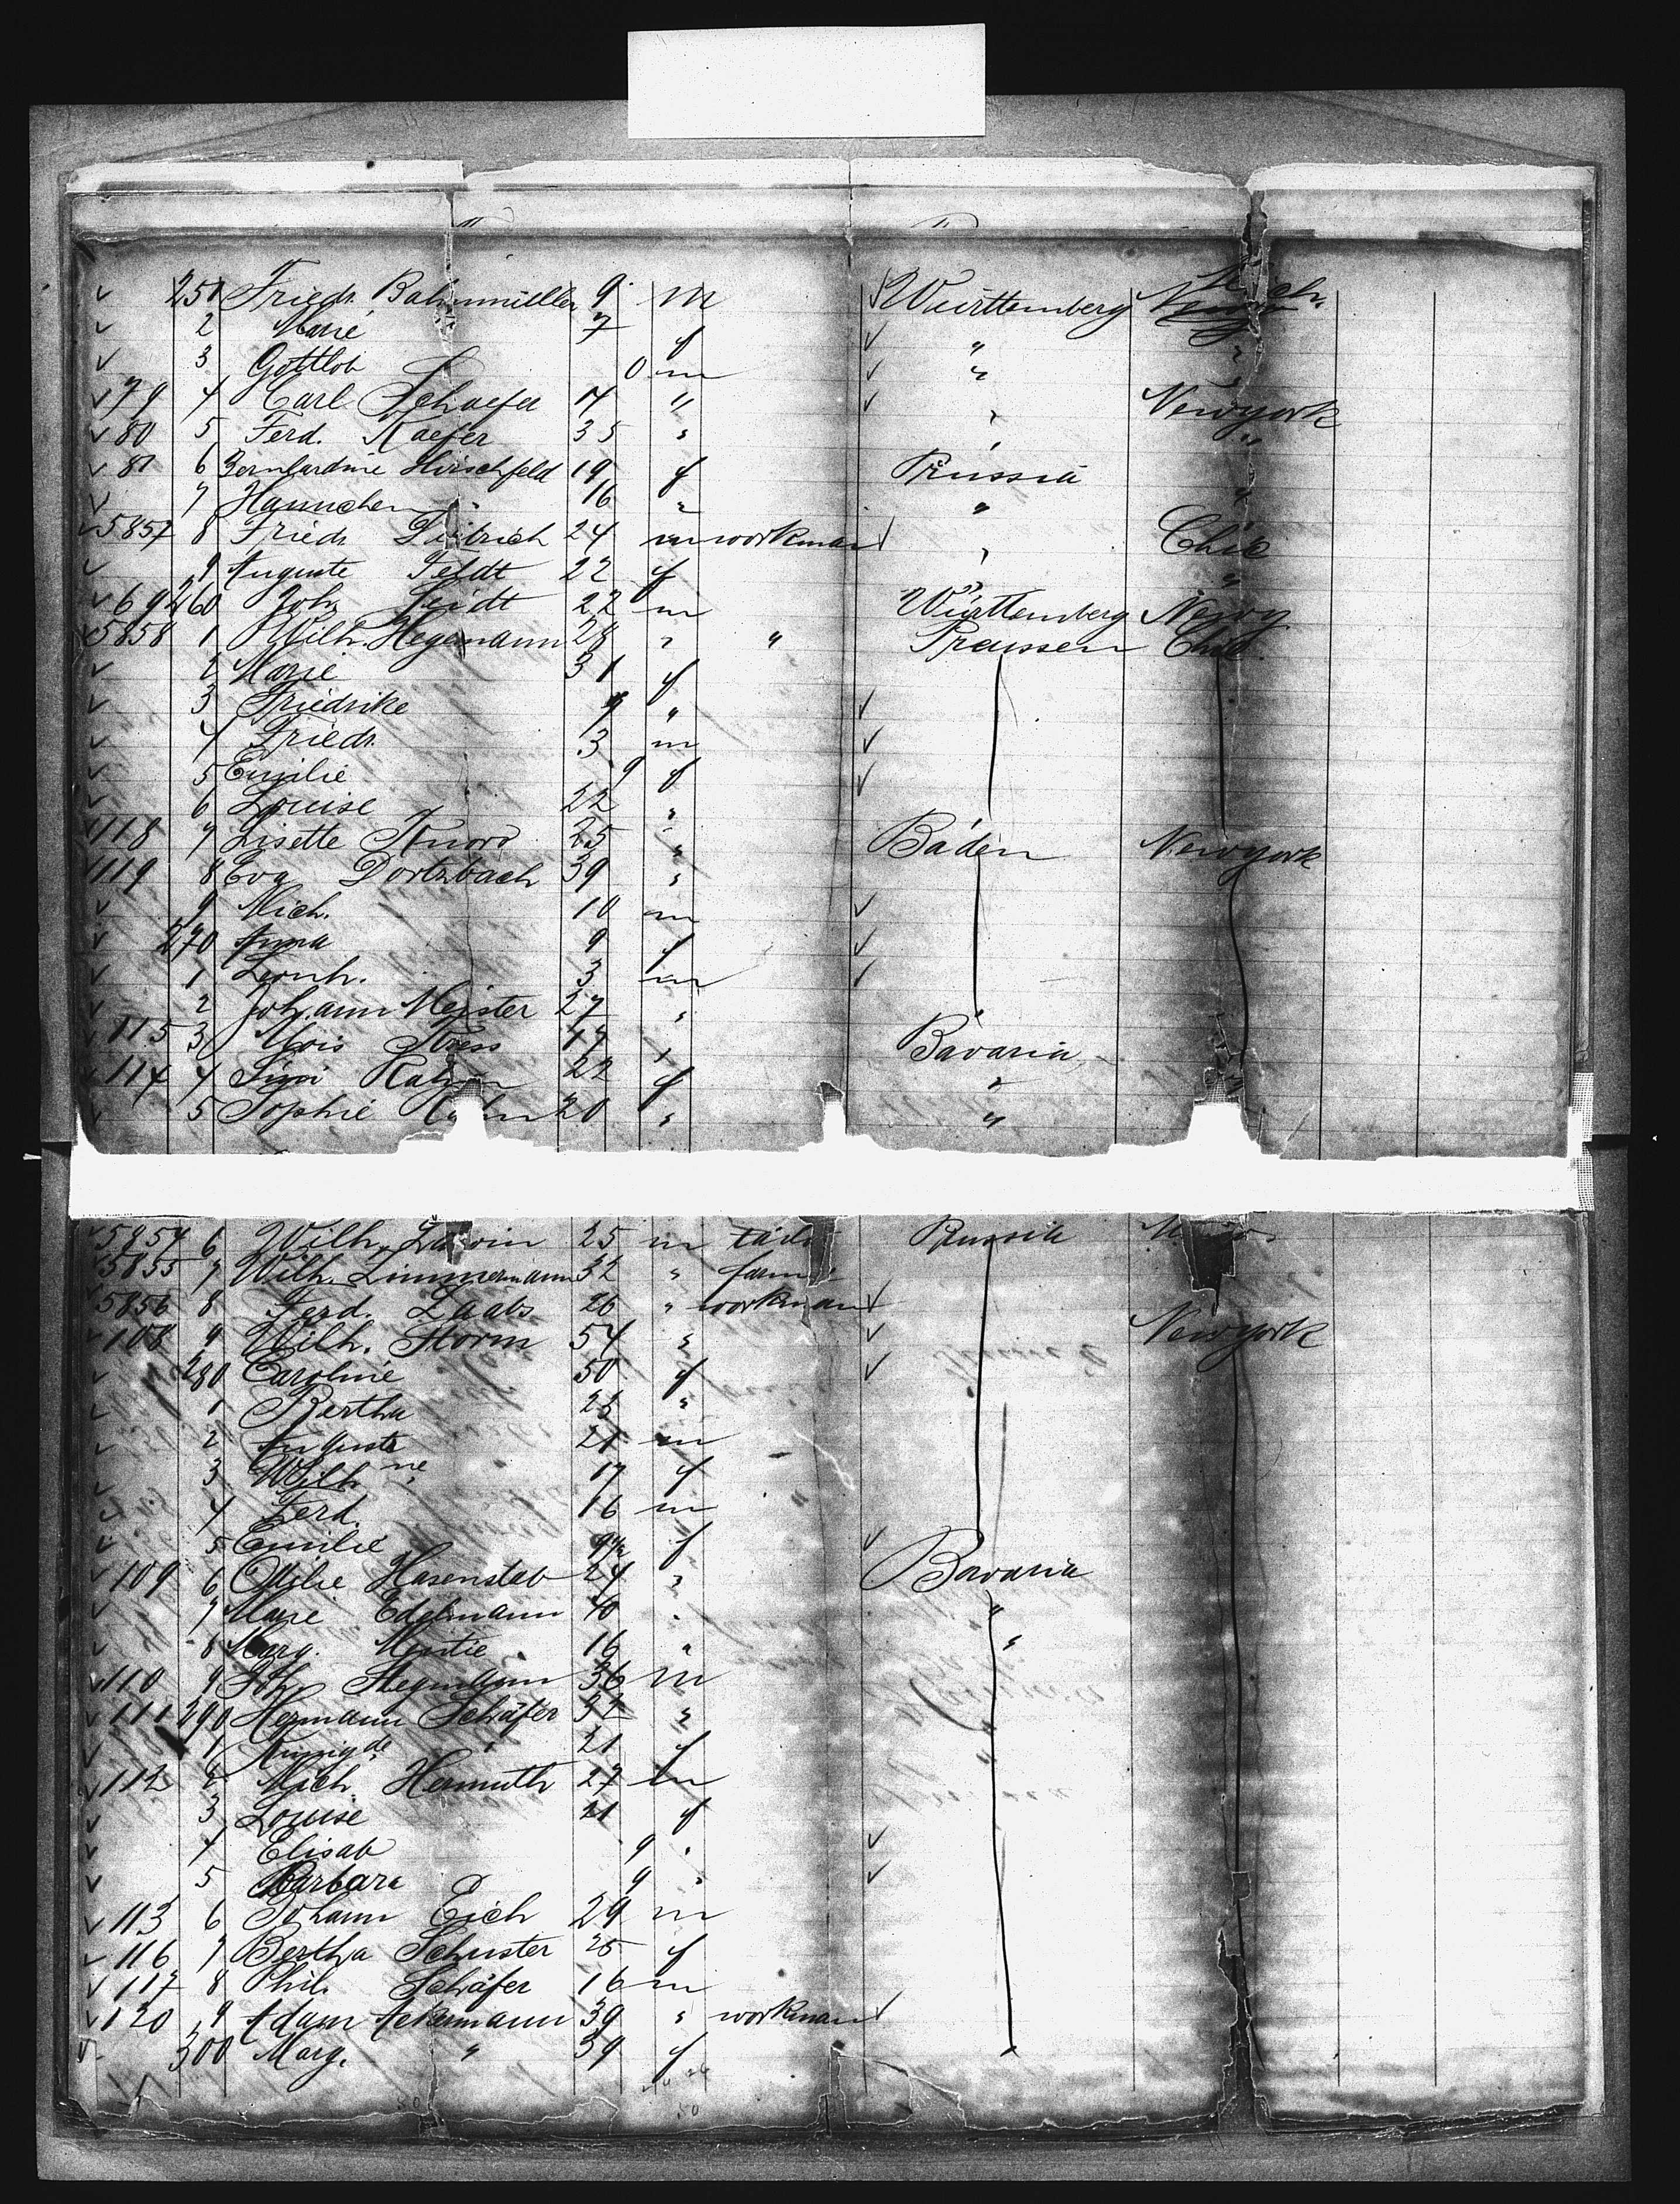 251 Friedr. Bahnmüller 9 m Württemberg Mich.
2 Marie 7 f " "
3 Gottlob 0 m " "
79 4 Carl Schaefer 17 " " Newyork
80 5 Ferd. Kaefer 35 " " "
81 6 Bernhardine Hirschfeld 19 f Prussia
7 Hannchen " 16 " " "
5857 8 Friedr. Dietrich 24 m workman " Chic
9 Auguste Feldt 22 f " "
69 260 Joh. Seidt 22 m Württemberg Newy
5858 1 Wilh. Hegemann 28 " " Preussen Chic
2 Marie 31 f
3 Friedrike 9 "
4 Friedr. 3 m
5 Emilie 9 f
6 Louise 22 "
118 7 Lisette Knorr 25 " Baden Newyork
119 8 Eva Dortzbach 39 "
9 Mich. 10 m
270 Anna 9 f
1 Leonh. 3 m
2 Johann Meister 27 "
115 3 Alois Kress 17 " Bavaria
114 4 22 f "
5 Sophie 20 " "
5854 6 Wilh. 25 m Prussia
5855 7 Wilh. Zimmermann 32 " farm
5856 8 Ferd. Laabs 26 " workman
108 9 Wilh. Storm 54 " Newyork
280 Caroline 50 f
1 Bertha 23 "
2 August 21 m
3 Wilh.ne 17 f
4 Ferd. 16 m
5 Emilie 9 1/2 f
109 6 Ottilie Hasenstab 24 " Bavaria
7 Marie Edelmann 40 " "
8 Marg. 16 " "
110 9 Joh. Stegmann 36 m
111 290 Hermann Schäfer 32 "
1 Kunigde " 21 f
112 2 Mich. Hermuth 27 m
3 Louise 21 f
4 Elisab 9 "
5 Barbara 9 "
113 6 Johann Eich 29 m
116 7 Bertha Schuster 25 f
117 8 Phil. Schäfer 16 m
120 9 Adam Ackermann 39 " workman
300 Marg. " 39 f
50 50